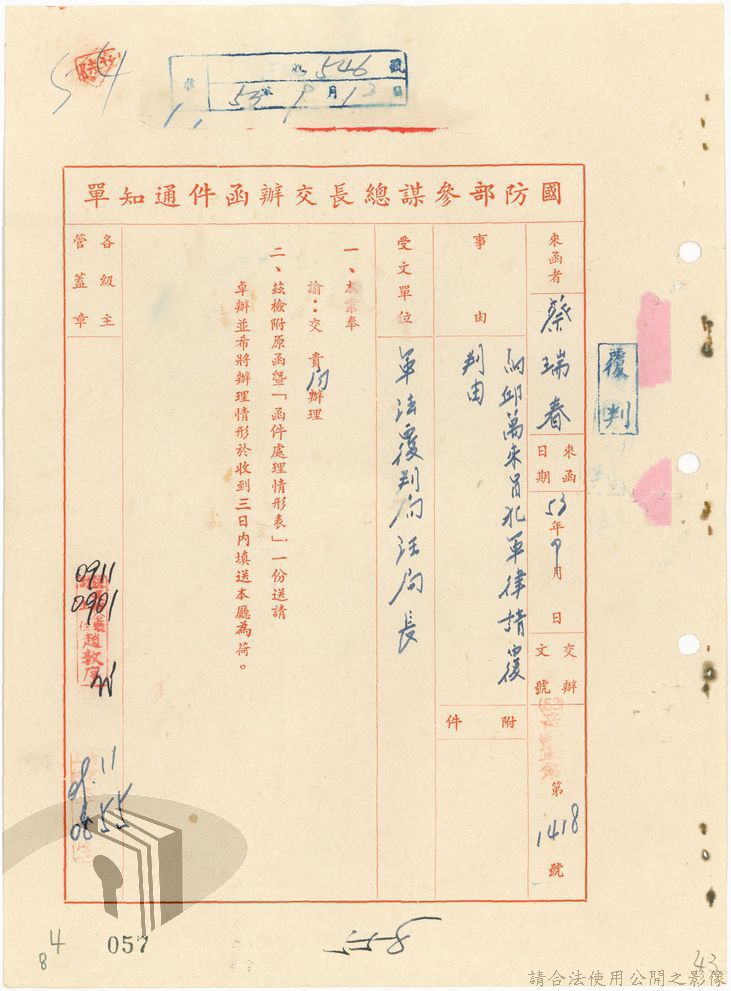 54
546 號
53 年 9 月 12 日
國防部參謀總長交辦函件通知單
來函者
蔡瑞春
來函日期
53年9月 日
交辦文號
第1418號
事由
為邱萬來冒犯軍律請覆
判由
附件
受文單位
軍法覆判局汪局長
一、本案奉
諭：交 貴局辦理
二、茲檢附原函暨「函件處理情形表」一份送請
卓辦並希將辦理情形於收到三日內填送本廳為荷。
各級主
管蓋章
0911
0901
09.11
0855
覆判
4
8
057
43
請合法使用公開之影像